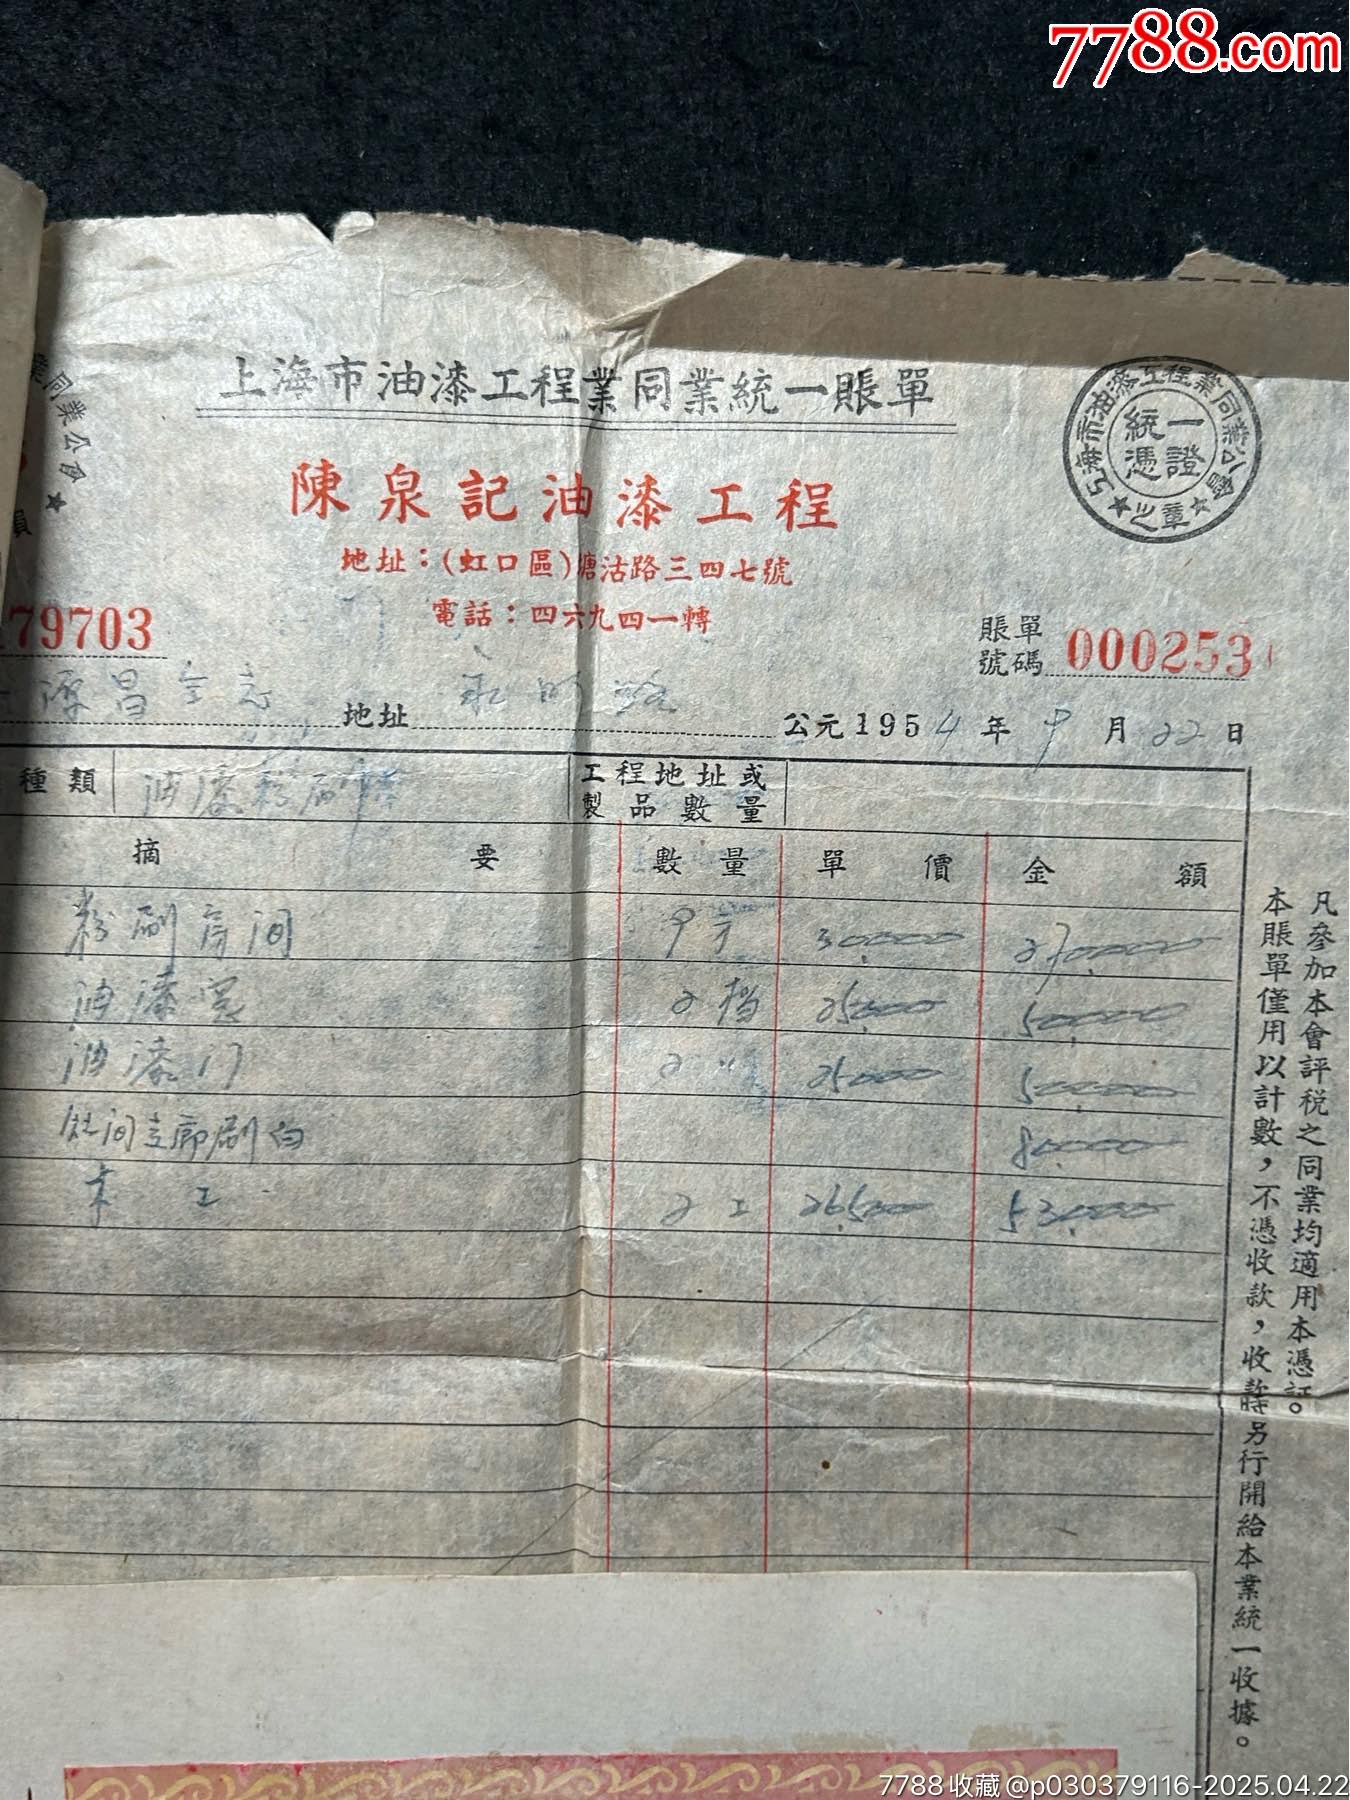 7788.com
上海市油漆工程業同業統一賬單
上海市油漆工程業同業公會
統一
憑證
之章
業同業公會
陳泉記油漆工程
地址：(虹口區)塘沽路三四七號
電話：四六九四一轉
79703
賬單
號碼 000253
昌 地址 路 公元1954年9月22日
種類 油漆粉刷 工程地址或
製品數量
摘要 數量 單價 金額
粉刷房間 9方 30000 270000
油漆窗 2档 25000 50000
油漆门 2〃 25000 50000
間 刷白 80000
木工 2工 26500 53000
凡參加本會評税之同業均適用本憑証。
本賬單僅用以計數，不憑收款，收款時另行開給本業統一收據。
7788收藏@p030379116-2025.04.22